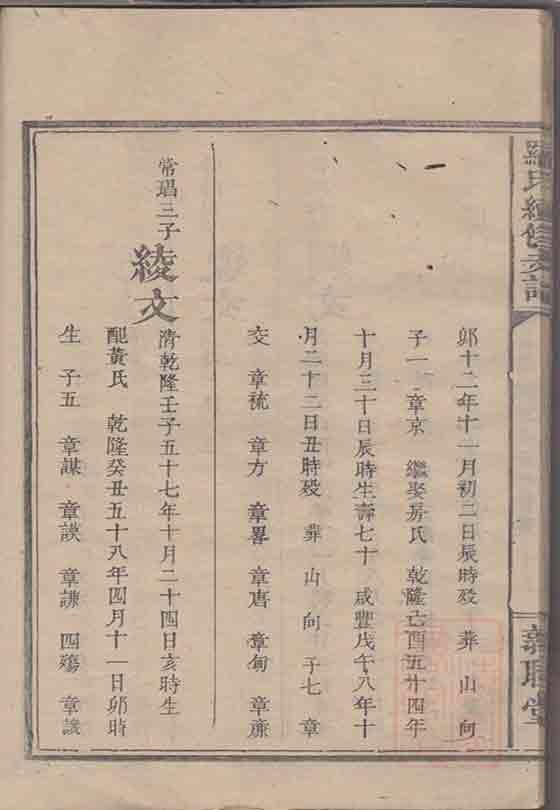 羅氏續修支譜
卯十二年十一月初二日辰時歿 葬 山 向
子一 章京 繼娶房氏 乾隆己酉五十四年
十月三十日辰時生壽七十 咸豐戊午八年十
月二十二日丑時歿 葬 山 向 子七 章
交 章梳 章方 章畧 章唐 章甸 章廉
常瑁三子
綾文
清乾隆壬子五十七年十月二十四日亥時生
配黃氏 乾隆癸丑五十八年四月十一日卯時
生 子五 章謀 章談 章謙 四殤 章議
堂